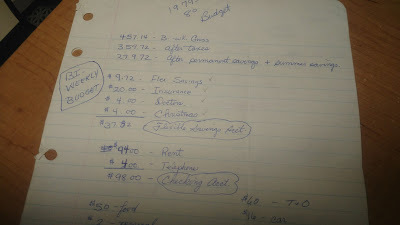 1997
Budget
457.14 - B. wk. Gross
357.72 - after taxes
279.72 - after permanent savings + summer savings
BI WEEKLY BUDGET
$9.72 - Flex Savings
$20.00 - Insurance
$4.00 - Doctors
$4.00 - Christmas
$37.72 - Flexible Savings Acct
$94.00 - Rent
$4.00 - Telephone
$98.00 - Checking Acct
$50 - food
$60 - T+O
$16 - gas
$2 -